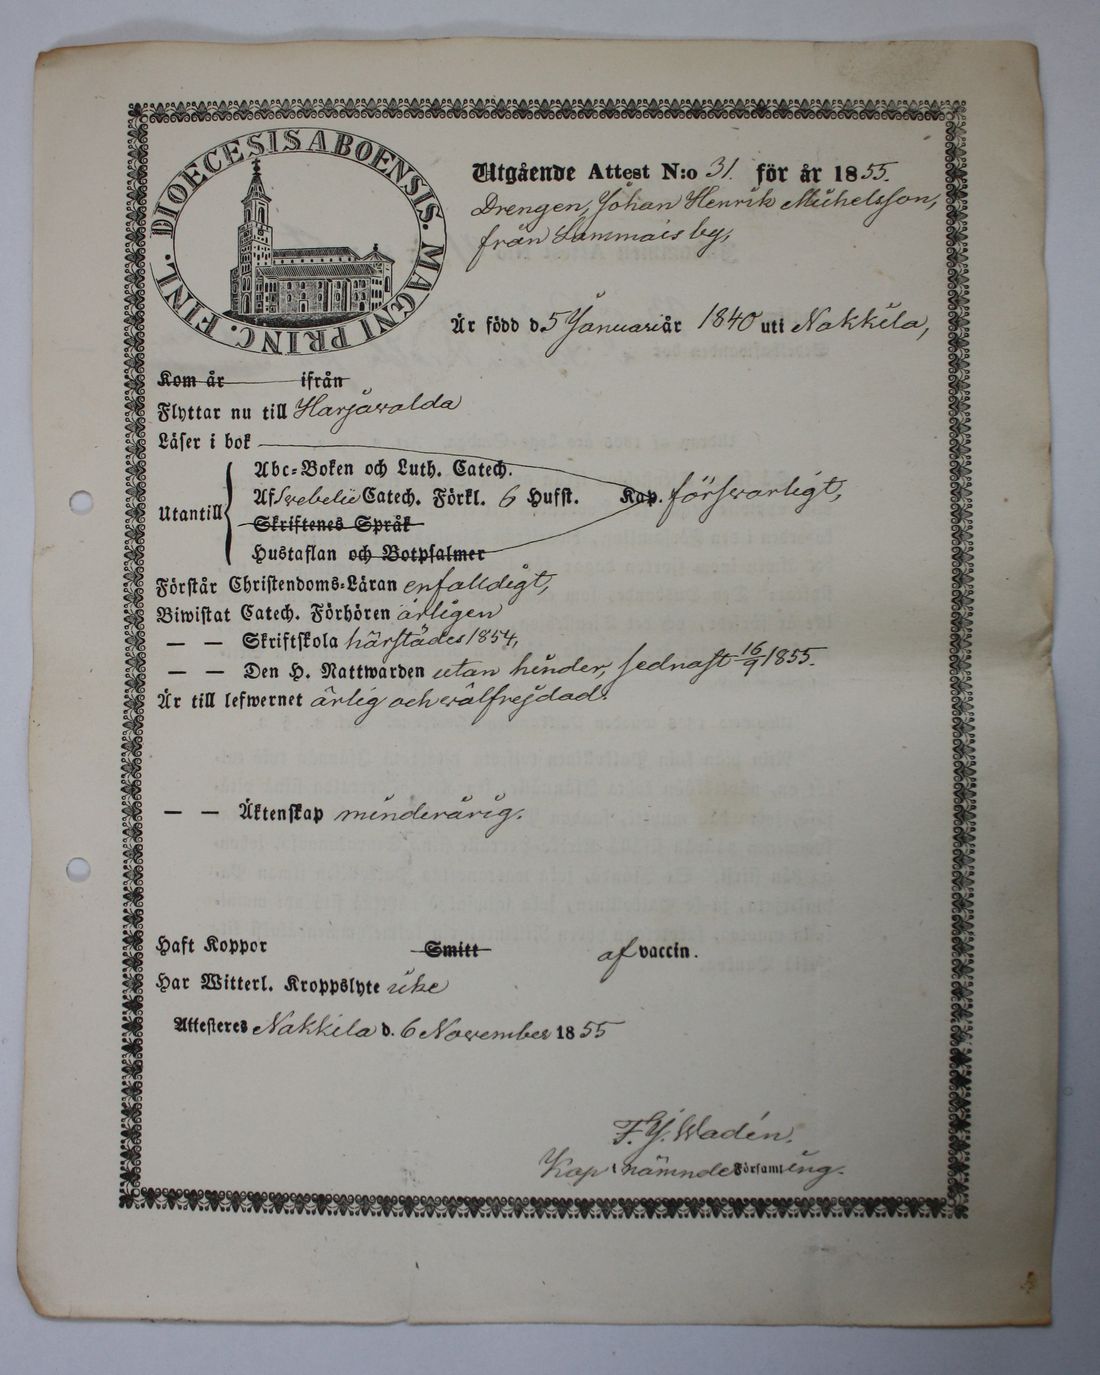 DIOECESIS ABOENSIS. MAGNI PRINC. FINL.
Utgående Attest N:o 31. för år 1855.
Drengen, Johan Henrik Michelsson,
från Lammais by,
Är född d. 5 Januari år 1840 uti Nakkila,
Kom år ifrån
Flyttar nu till Harjawalda
Läser i bok
Abc-Boken och Luth. Catech.
Utantill Af Swebelii Catech. Förkl. 6 Hufst. Kap. förswarligt,
Skriftenes Språk
Hustaflan och Botpsalmer
Förstår Christendoms-Läran enfalldigt,
Biwistat Catech. Förhören årligen
— — Skriftskola härstädes 1854,
— — Den H. Nattwarden utan hinder, sednast 16/9 1855.
Är till lefwernet ärlig och wälfrejdad.
— — Äktenskap minderårig.
Haft Koppor Smitt af vaccin.
Har Witterl. Kroppslyte icke
Attesteres Nakkila d. 6 November 1855
F. J. Wadén.
Kap i nämnde Församling.